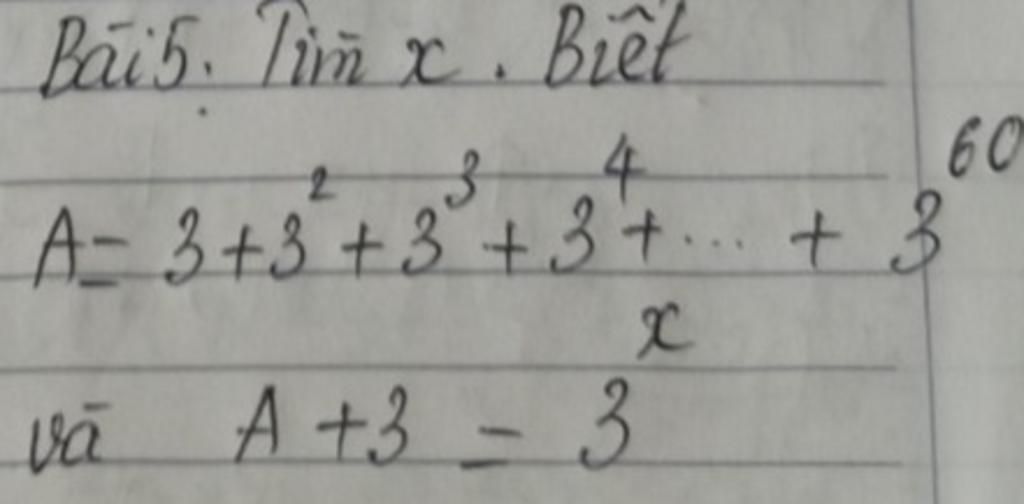 Bài 5. Tìm x. Biết
A = 3 + 3² + 3³ + 3⁴ + ... + 3⁶⁰
và A + 3 = 3ˣ